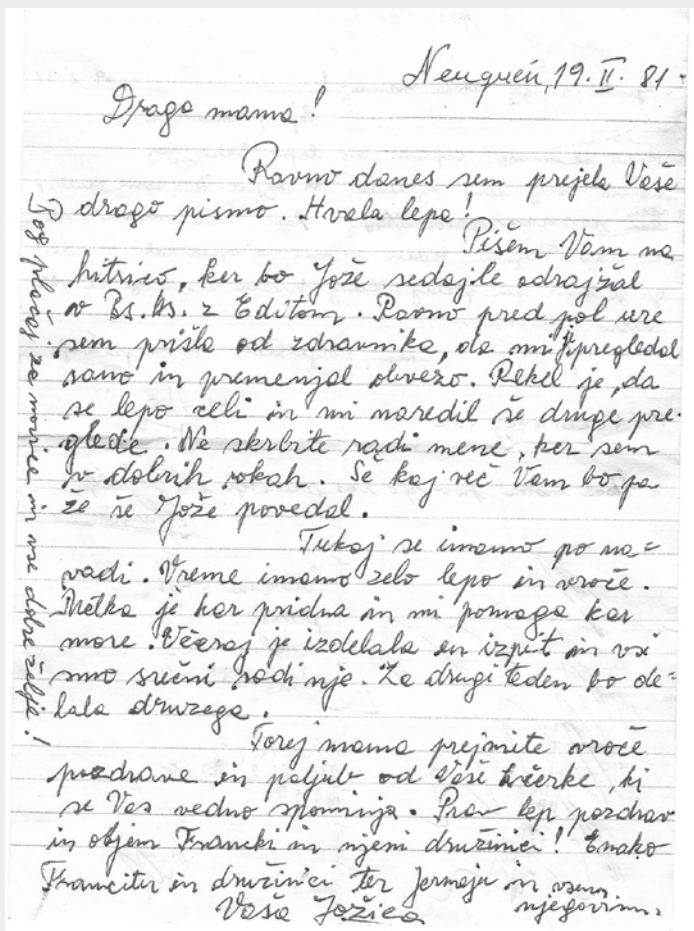 Neuquén, 19. II. 81.
Draga mama!
Ravno danes sem prejela Vaše
drago pismo. Hvala lepa!
Pišem Vam na
hitrico, ker bo Jože sedajle odrajžal
v Bs. As. z Editom. Ravno pred pol ure
sem prišla od zdravnika, da mi je pregledal
rano in premenjal obvezo. Rekel je, da
se lepo celi in mi naredil še druge pre-
glede. Ne skrbite radi mene, ker sem
v dobrih rokah. Še kaj več Vam bo pa
že še Jože povedal.
Tukaj se imamo po na=
vadi. Vreme imamo zelo lepo in vroče.
Metka je kar pridna in mi pomaga kar
more. Včeraj je izdelala en izpit in vsi
smo srečni radi nje. Za drugi teden bo de=
lala druzega.
Torej mama prejmite vroče
pozdrave in poljub od Vaše hčerke, ki
se Vas vedno spominja. Prav lep pozdrav
in objem Francki in njeni družinici! Enako
Francitu in družinici ter Jerneju in vsem
njegovim.
Vaša Jožica
Bog plačaj za novice in vse dobre želje!